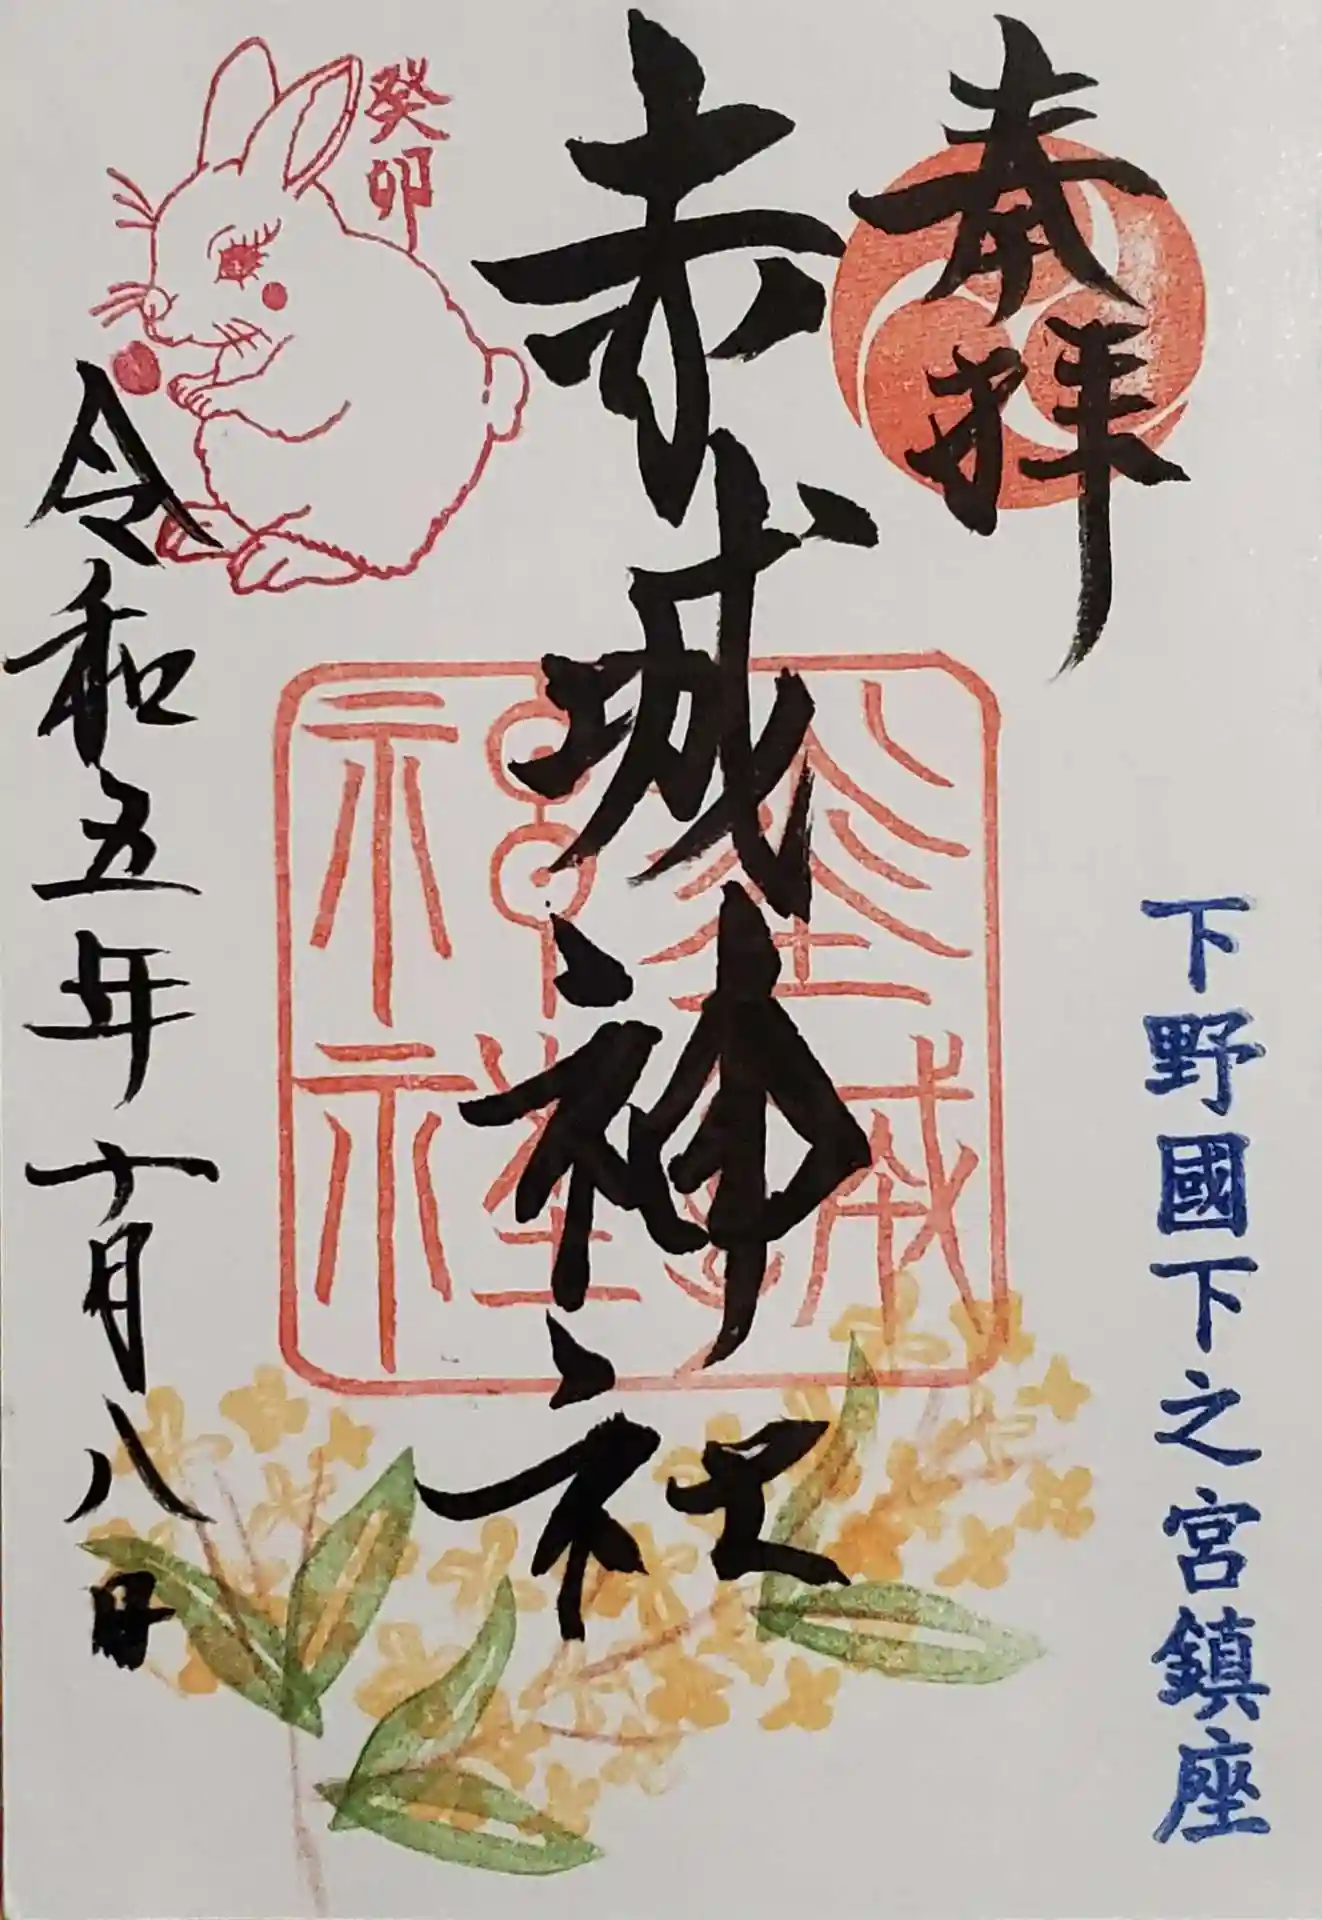 奉拝
下野國下之宮鎮座
赤城神社
癸卯
令和五年十月八日